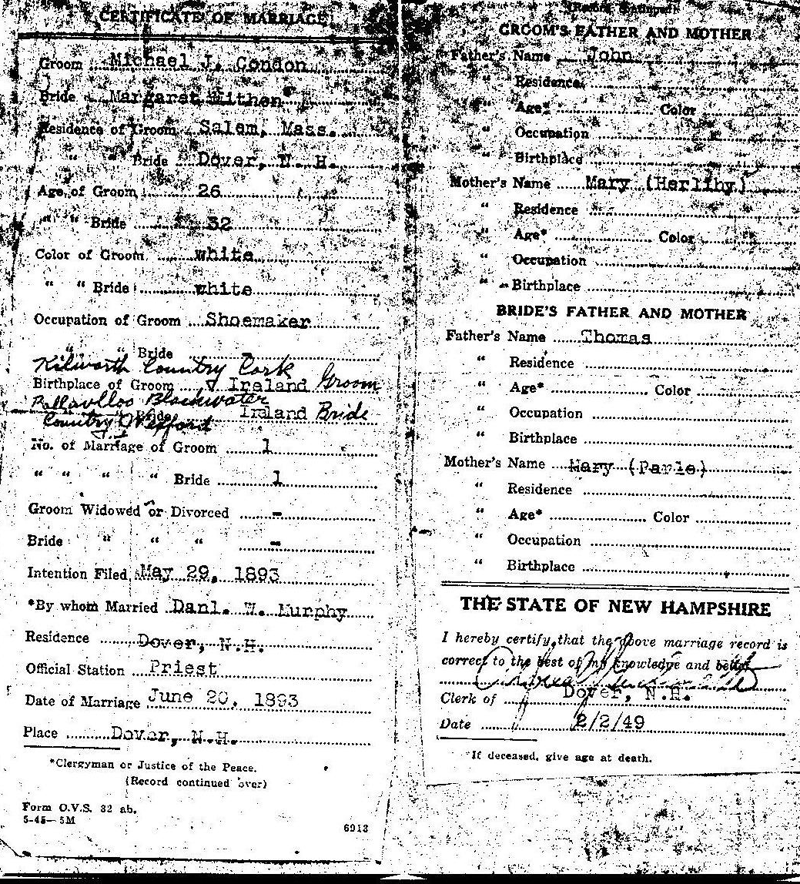 CERTIFICATE OF MARRIAGE
Groom Michael J. Condon
Bride Margaret Withen
Residence of Groom Salem, Mass.
" " Bride Dover, N. H.
Age of Groom 26
" " Bride 32
Color of Groom white
" " Bride white
Occupation of Groom Shoemaker
" " Bride
Kilworth Country Cork
Birthplace of Groom Ireland Groom
Blackwater
" Bride Ireland Bride
Country Wexford
No. of Marriage of Groom 1
" " " " Bride 1
Groom Widowed or Divorced -
Bride " " " -
Intention Filed May 29, 1893
*By whom Married Danl. W. Murphy
Residence Dover, N.H.
Official Station Priest
Date of Marriage June 20, 1893
Place Dover, N.H.
*Clergyman or Justice of the Peace.
(Record continued over)
Form O.V.S. 32 ab.
5-45—5M
6913
(Record Continued)
GROOM'S FATHER AND MOTHER
Father's Name John
" Residence
" Age* Color
" Occupation
" Birthplace
Mother's Name Mary (Herlihy)
" Residence
" Age* Color
" Occupation
" Birthplace
BRIDE'S FATHER AND MOTHER
Father's Name Thomas
" Residence
" Age* Color
" Occupation
" Birthplace
Mother's Name Mary (Parle)
" Residence
" Age* Color
" Occupation
" Birthplace
THE STATE OF NEW HAMPSHIRE
I hereby certify that the above marriage record is
correct to the best of my knowledge and belief.
Clerk of Dover, N.H.
Date 2/2/49
*If deceased, give age at death.